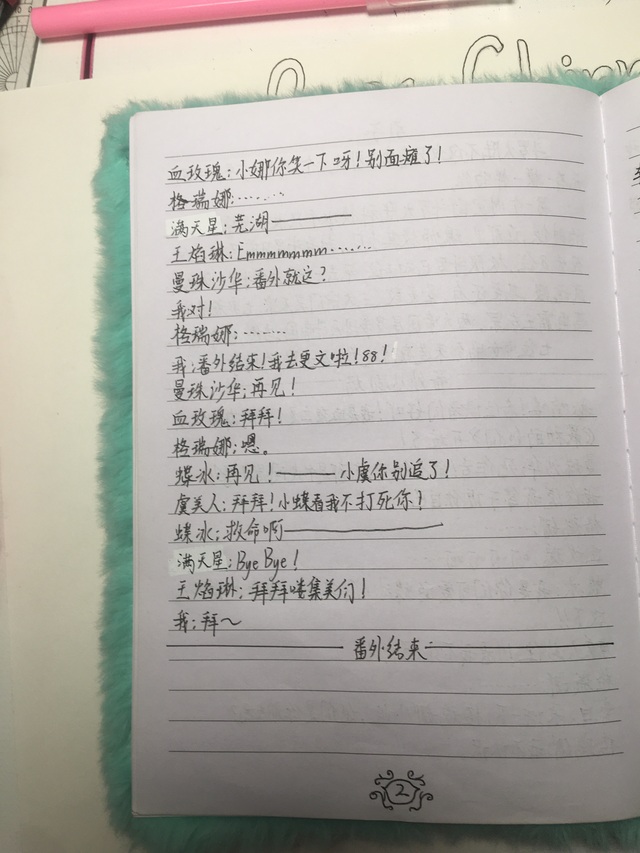 血玫瑰:小娜你笑一下呀!别面瘫了!
格瑞娜:……
满天星:芜湖————
王焰琳:Emmmmmmm……
曼珠沙华:番外就这?
我对!
格瑞娜:……
我:番外结束!我去更文啦!88!
曼珠沙华:再见!
血玫瑰:拜拜!
格瑞娜:嗯。
蝶冰:再见!————小虞你别追了!
虞美人:拜拜!小蝶看我不打死你?
蝶冰:救命啊————————
满天星:Bye Bye!
王焰琳:拜拜喽集美们!
我:拜～
————————番外结束————————
2